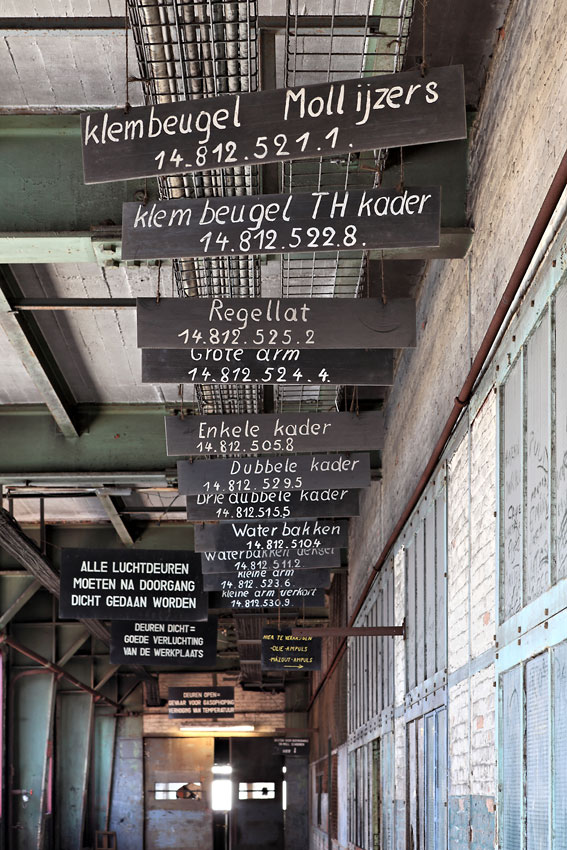 klembeugel Mollijzers
14.812.521.1.
klembeugel TH kader
14.812.522.8.
Regellat
14.812.525.2
Grote arm
14.812.524.4.
Enkele kader
14.812.505.8
Dubbele kader
14.812.529.5
Driedubbele kader
14.812.515.5
Waterbakken
14.812.510.4
Waterbakken deksel
14.812.511.2
kleine arm
14.812.523.6
kleine arm verkort
14.812.530.9
ALLE LUCHTDEUREN
MOETEN NA DOORGANG
DICHT GEDAAN WORDEN
DEUREN DICHT=
GOEDE VERLUCHTING
VAN DE WERKPLAATS
HIER TE VERKRIJGEN
-OLIE-AMPULS
-MAZOUT-AMPULS
DEUREN OPEN=
GEVAAR VOOR GASOPHOPING
VERHOGING VAN TEMPERATUUR